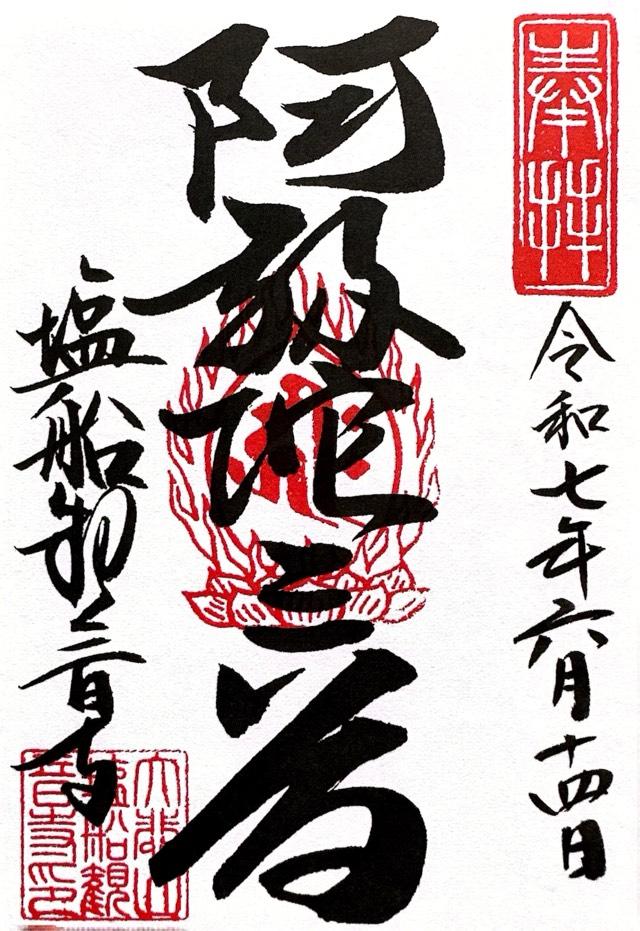 奉拝
令和七年六月十四日
阿弥陀三尊
塩船観音寺
大悲山
塩船觀
音寺印